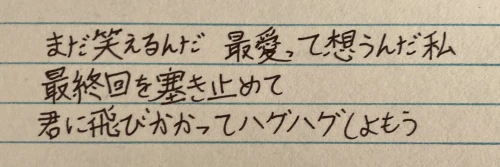 まだ笑えるんだ 最愛って想うんだ私
最終回を塞き止めて
君に飛びかかってハグハグしよもう